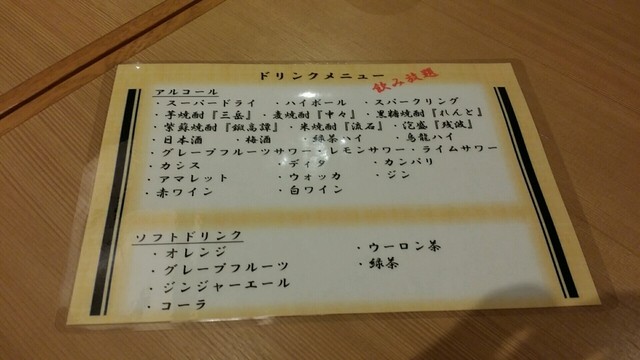 ドリンクメニュー
飲み放題
アルコール
・スーパードライ ・ハイボール ・スパークリング
・芋焼酎『三岳』・麦焼酎『中々』・黒糖焼酎『れんと』
・紫蘇焼酎『鍛高譚』 ・米焼酎『流石』 ・泡盛『残波』
・日本酒 ・梅酒 ・緑茶ハイ ・烏龍ハイ
・グレープフルーツサワー・レモンサワー・ライムサワー
・カシス ・ディタ ・カンパリ
・アマレット ・ウォッカ ・ジン
・赤ワイン ・白ワイン
ソフトドリンク
・オレンジ ・ウーロン茶
・グレープフルーツ ・緑茶
・ジンジャーエール
・コーラ